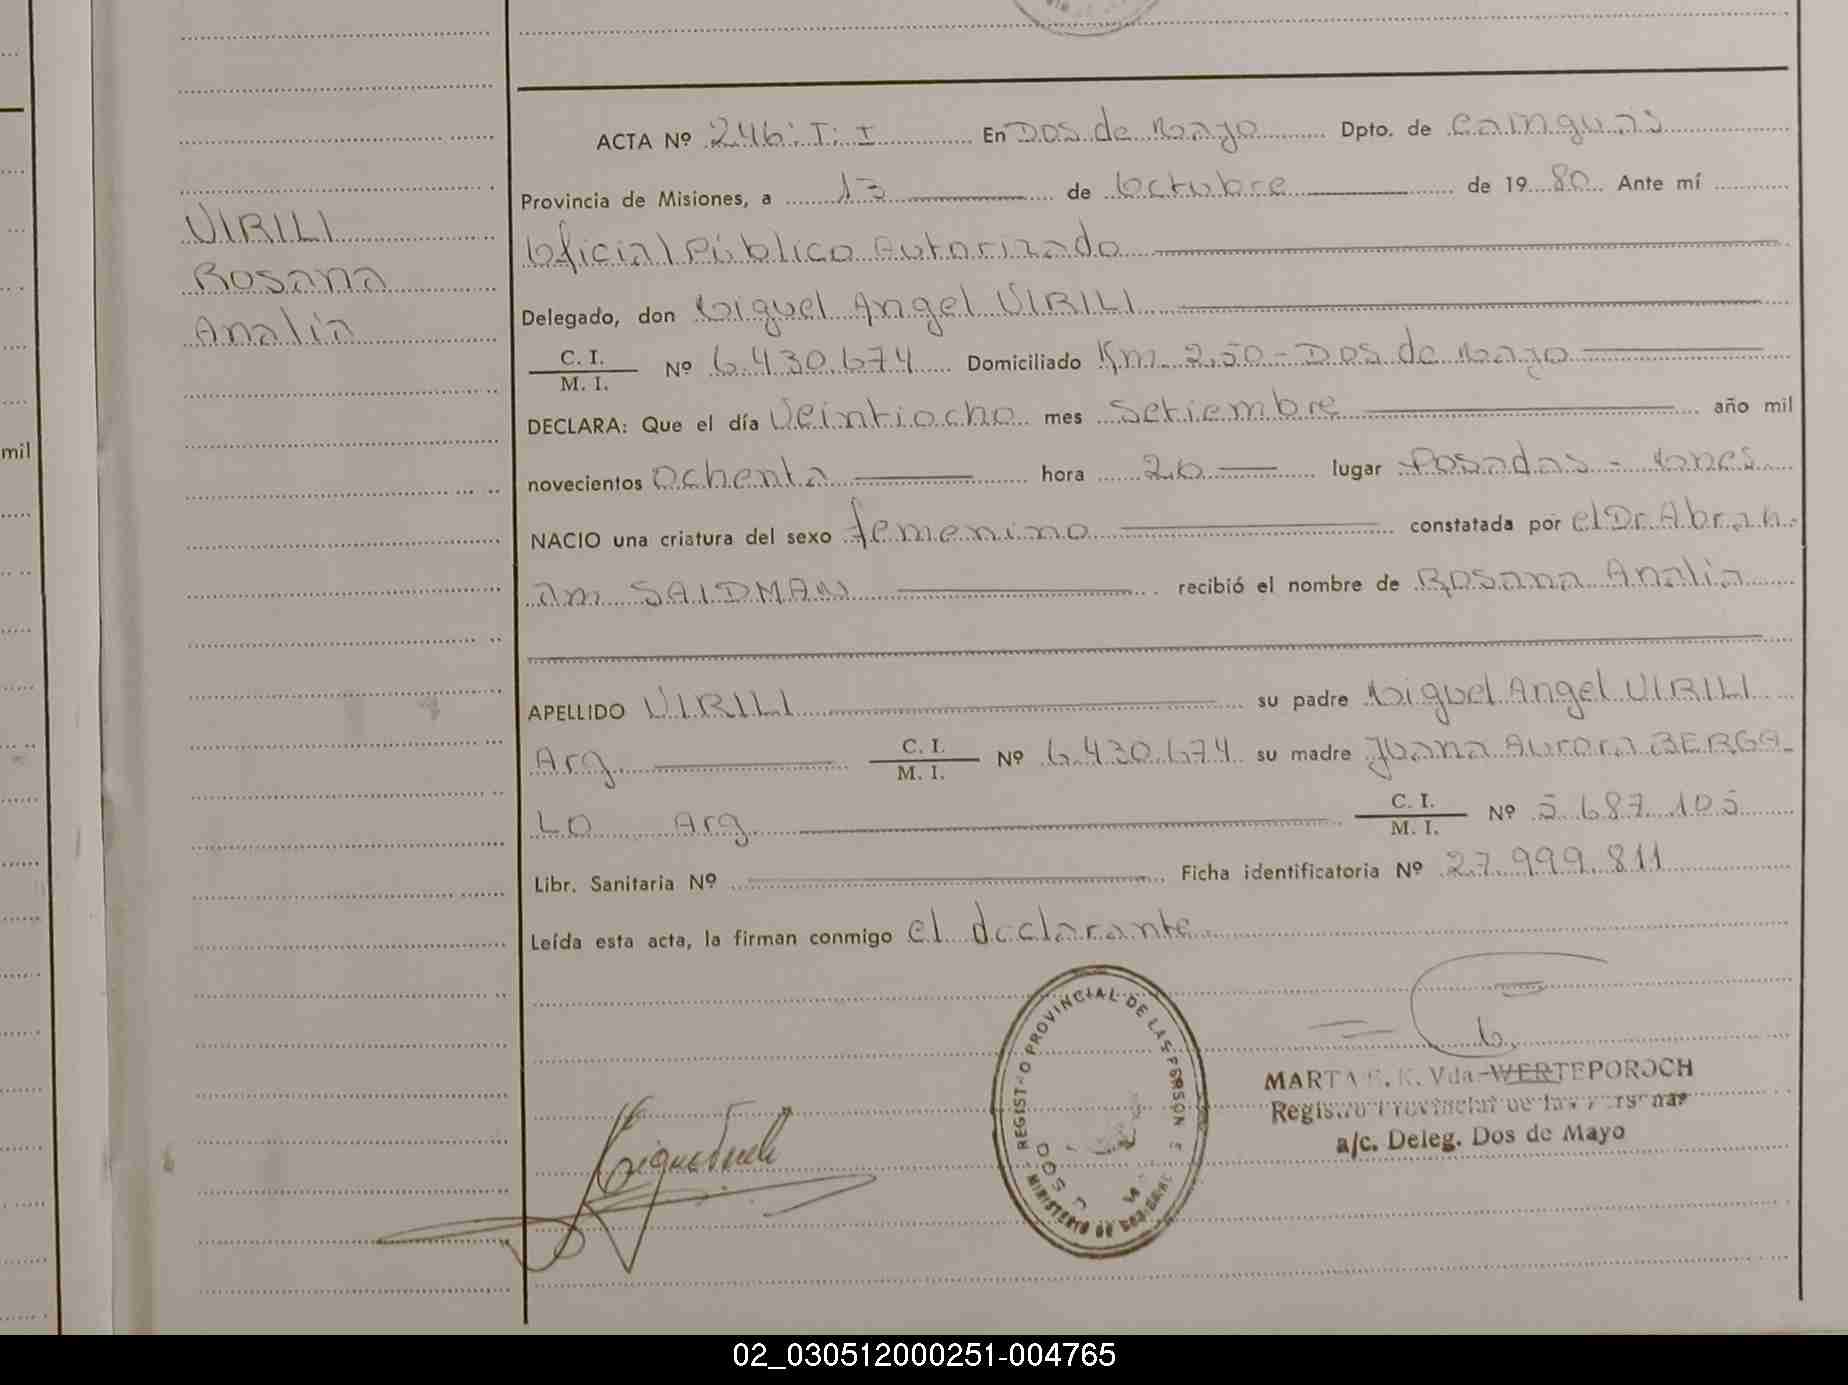 mil
VIRILI
Rosana
Analia
ACTA Nº 246: T: I En Dos de Mayo Dpto. de Cainguás
Provincia de Misiones, a 13 de Octubre de 1980 Ante mí
Oficial Público Autorizado
Delegado, don Miguel Angel VIRILI
C. I.
M. I. Nº 6.430.674 Domiciliado Km. 2,50 - Dos de Mayo
DECLARA: Que el día Veintiocho mes Setiembre año mil
novecientos Ochenta hora 20 lugar Posadas - Mnes
NACIO una criatura del sexo femenino constatada por el Dr. Abrah-
am SAIDMAN recibió el nombre de Rosana Analia
APELLIDO VIRILI su padre Miguel Angel VIRILI
Arg. C. I.
M. I. Nº 6.430.674 su madre Juana Aurora BERGA-
LO Arg. C. I.
M. I. Nº 5.687.105
Libr. Sanitaria Nº Ficha identificatoria Nº 27.999.811
Leída esta acta, la firman conmigo el declarante
REGISTRO PROVINCIAL DE LAS PERSON
MINISTERIO DE
MARTA E. K. Vda. WERTEPOROCH
Registro Provincial de las Personas
a/c. Deleg. Dos de Mayo
02_030512000251-004765